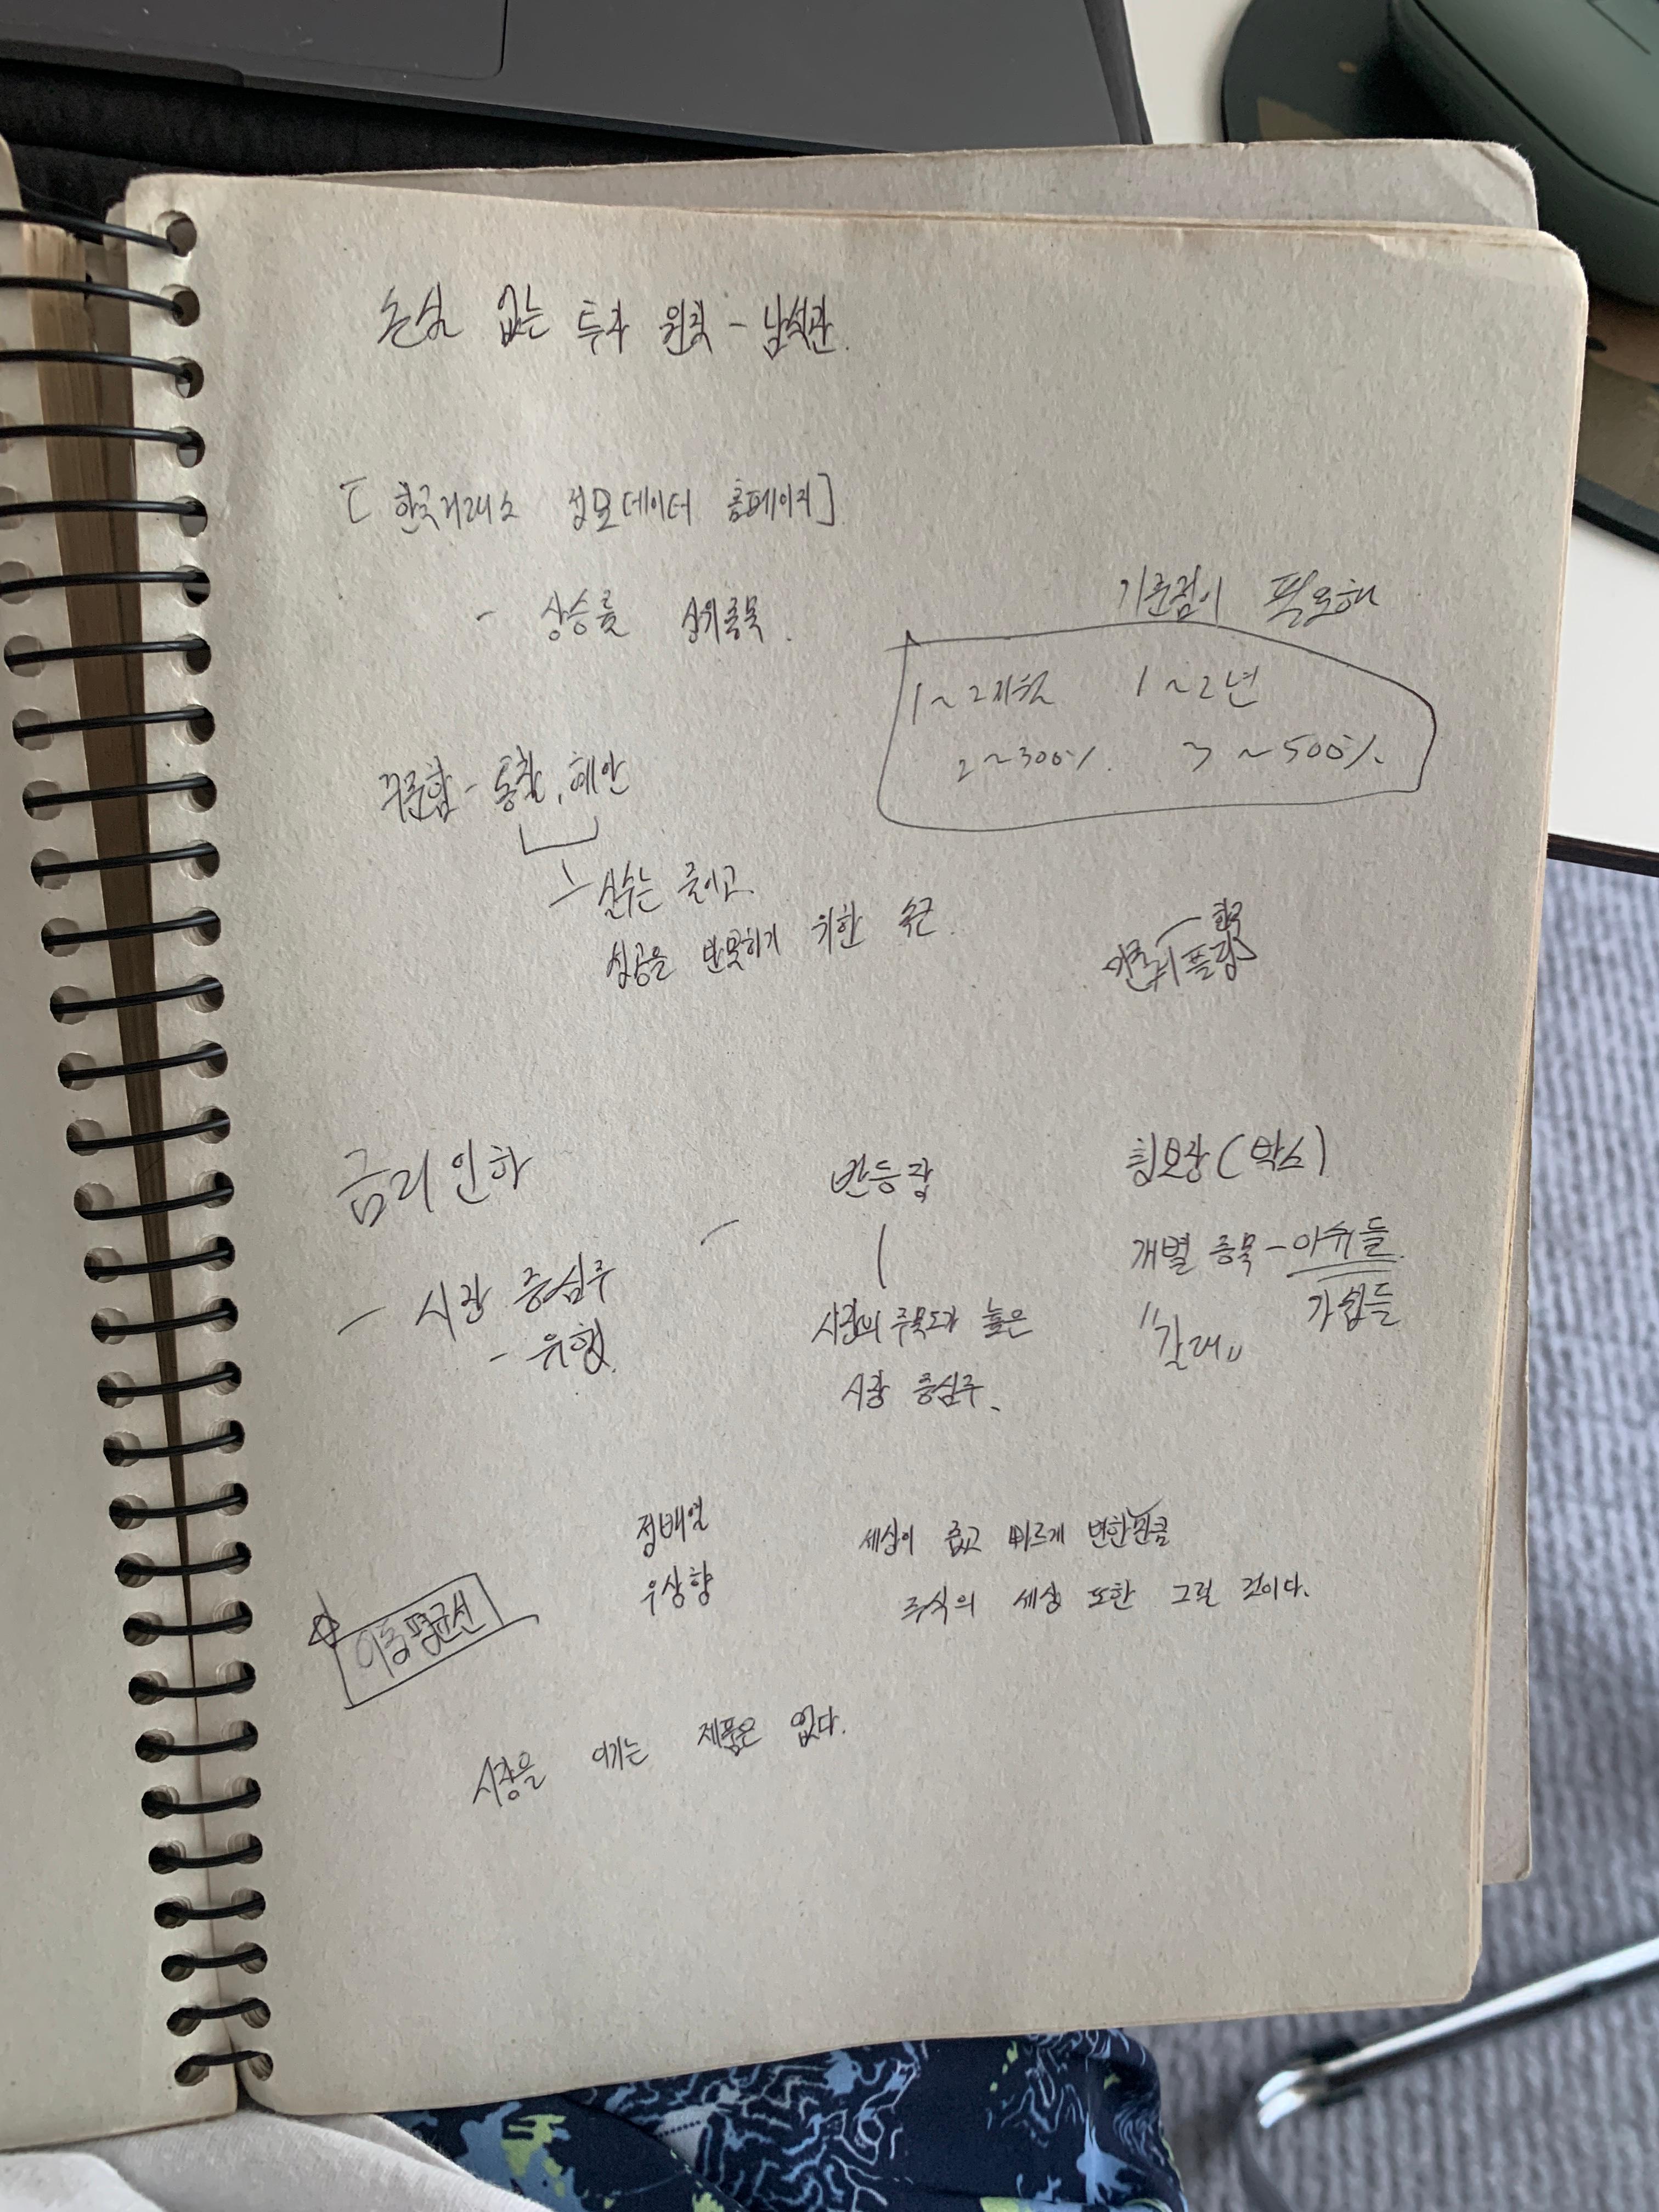 손실 없는 투자 원칙 - 남석관.
[한국거래소 정보데이터 홈페이지]
- 상승률 상위종목.
기준점이 필요해
1~2개월 1~2년
2~300%. 3~500%.
꾸준함 - 통찰, 혜안
실수는 줄이고
성공을 반복하기 위한
한국
금리인하
- 시장 중심주
- 유형.
반등장
시장의 주목도가 높은
시장 중심주.
횡보장 (박스)
개별 종목 - 이슈들
가십들
정배열
우상향
이동평균선
세상이 좁고 빠르게 변한만큼
주식의 세상 또한 그럴 것이다.
시장을 이기는 제품은 없다.